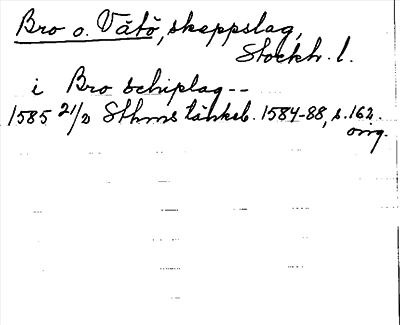 Bro o. Vätö, skeppslag,
Stockh. l.
i Bro schiplag--
1585 21/2 Sthms tänkeb. 1584-88, s. 162.
orig.